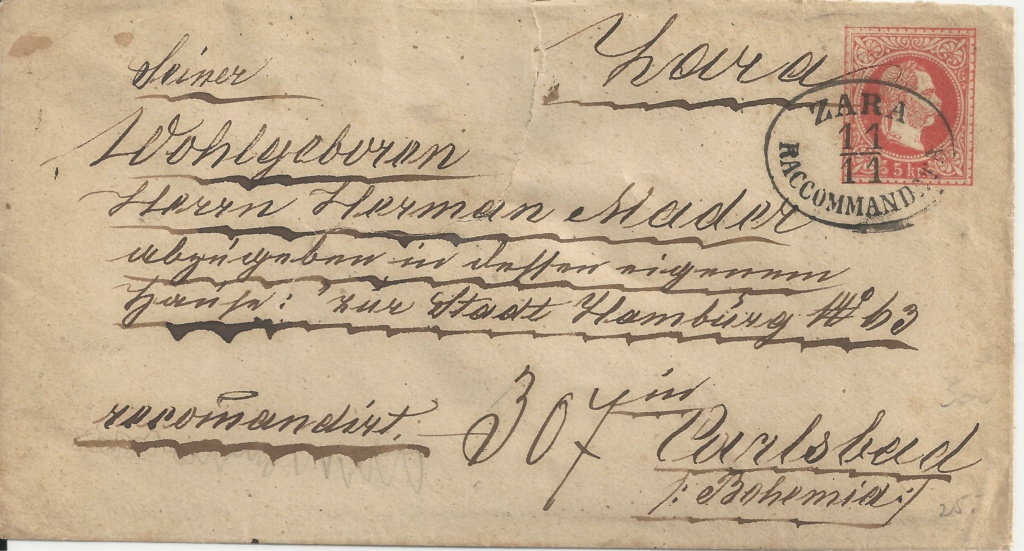 Zara
Seiner
ZARA
11
11
RACCOMMANDIRT
5
Wohlgeboren
Herrn Herman Mader
abzugeben in dessen eigenem
Hause: "zur Stadt Hamburg No 63
recom̄andirt.
307
in
Carlsbad
/: Bohemia :/
25.-